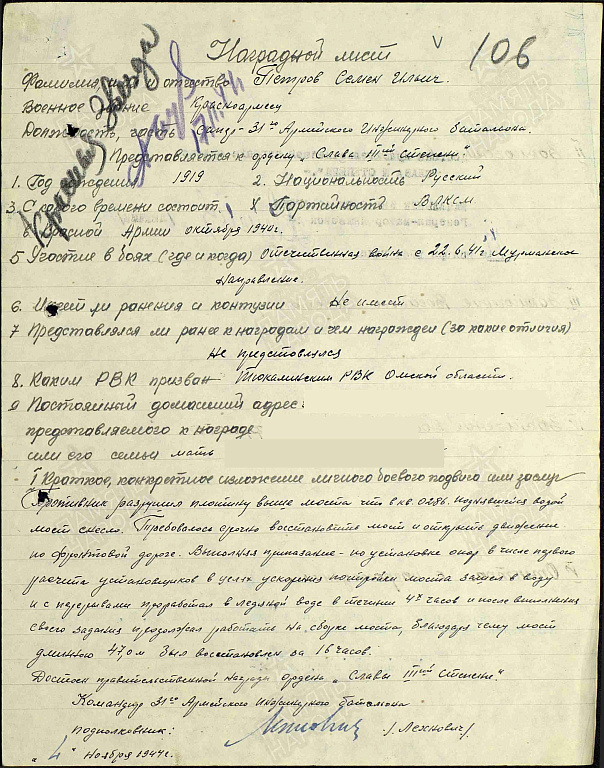 Наградной лист
V 106
Красная Звезда
Фамилия, имя и отчество Петров Семен Ильич.
Военное звание Красноармеец
Должность, часть Сапер - 31го Армейского Инженерного батальона.
Представляется к ордену „Слава IIIей Степени"
1. Год рождения 1919 2. Национальность Русский
3. С какого времени состоит 4 Партийность ВЛКСМ
в Красной Армии октября 1940г.
5 Участие в боях (где и когда) Отечественная война с 22.6.41г Мурманское
направление.
6. Имеет ли ранения и контузии Не имеет
7 Представлялся ли ранее к наградам и чем награжден (за какие отличия)
Не представлялся
8. Каким РВК призван Тюкалинским РВК Омской области.
9 Постоянный домашний адрес:
представляемого к награде
или его семьи мать
I Краткое, конкретное изложение личного боевого подвига или заслуг
Противник разрушил плотину выше моста что в кв. 0286. поднявшейся водой
мост снесло. Требовалось срочно восстановить мост и открыть движение
по фронтовой дороге. Выполняя приказание - по установке опор в числе первого
расчета установщиков в целях ускорения постройки моста залез в воду
и с перерывами проработал в ледяной воде в течении 4х часов и после выполнения
своего задания продолжал работать на сборке моста, благодаря чему мост
длиною 47,0 м был восстановлен за 16 часов.
Достоин правительственной награды ордена „Слава IIIей Степени."
Командир 31го Армейского Инженерного батальона
подполковник: /Лехнович/
„4" Ноября 1944г.